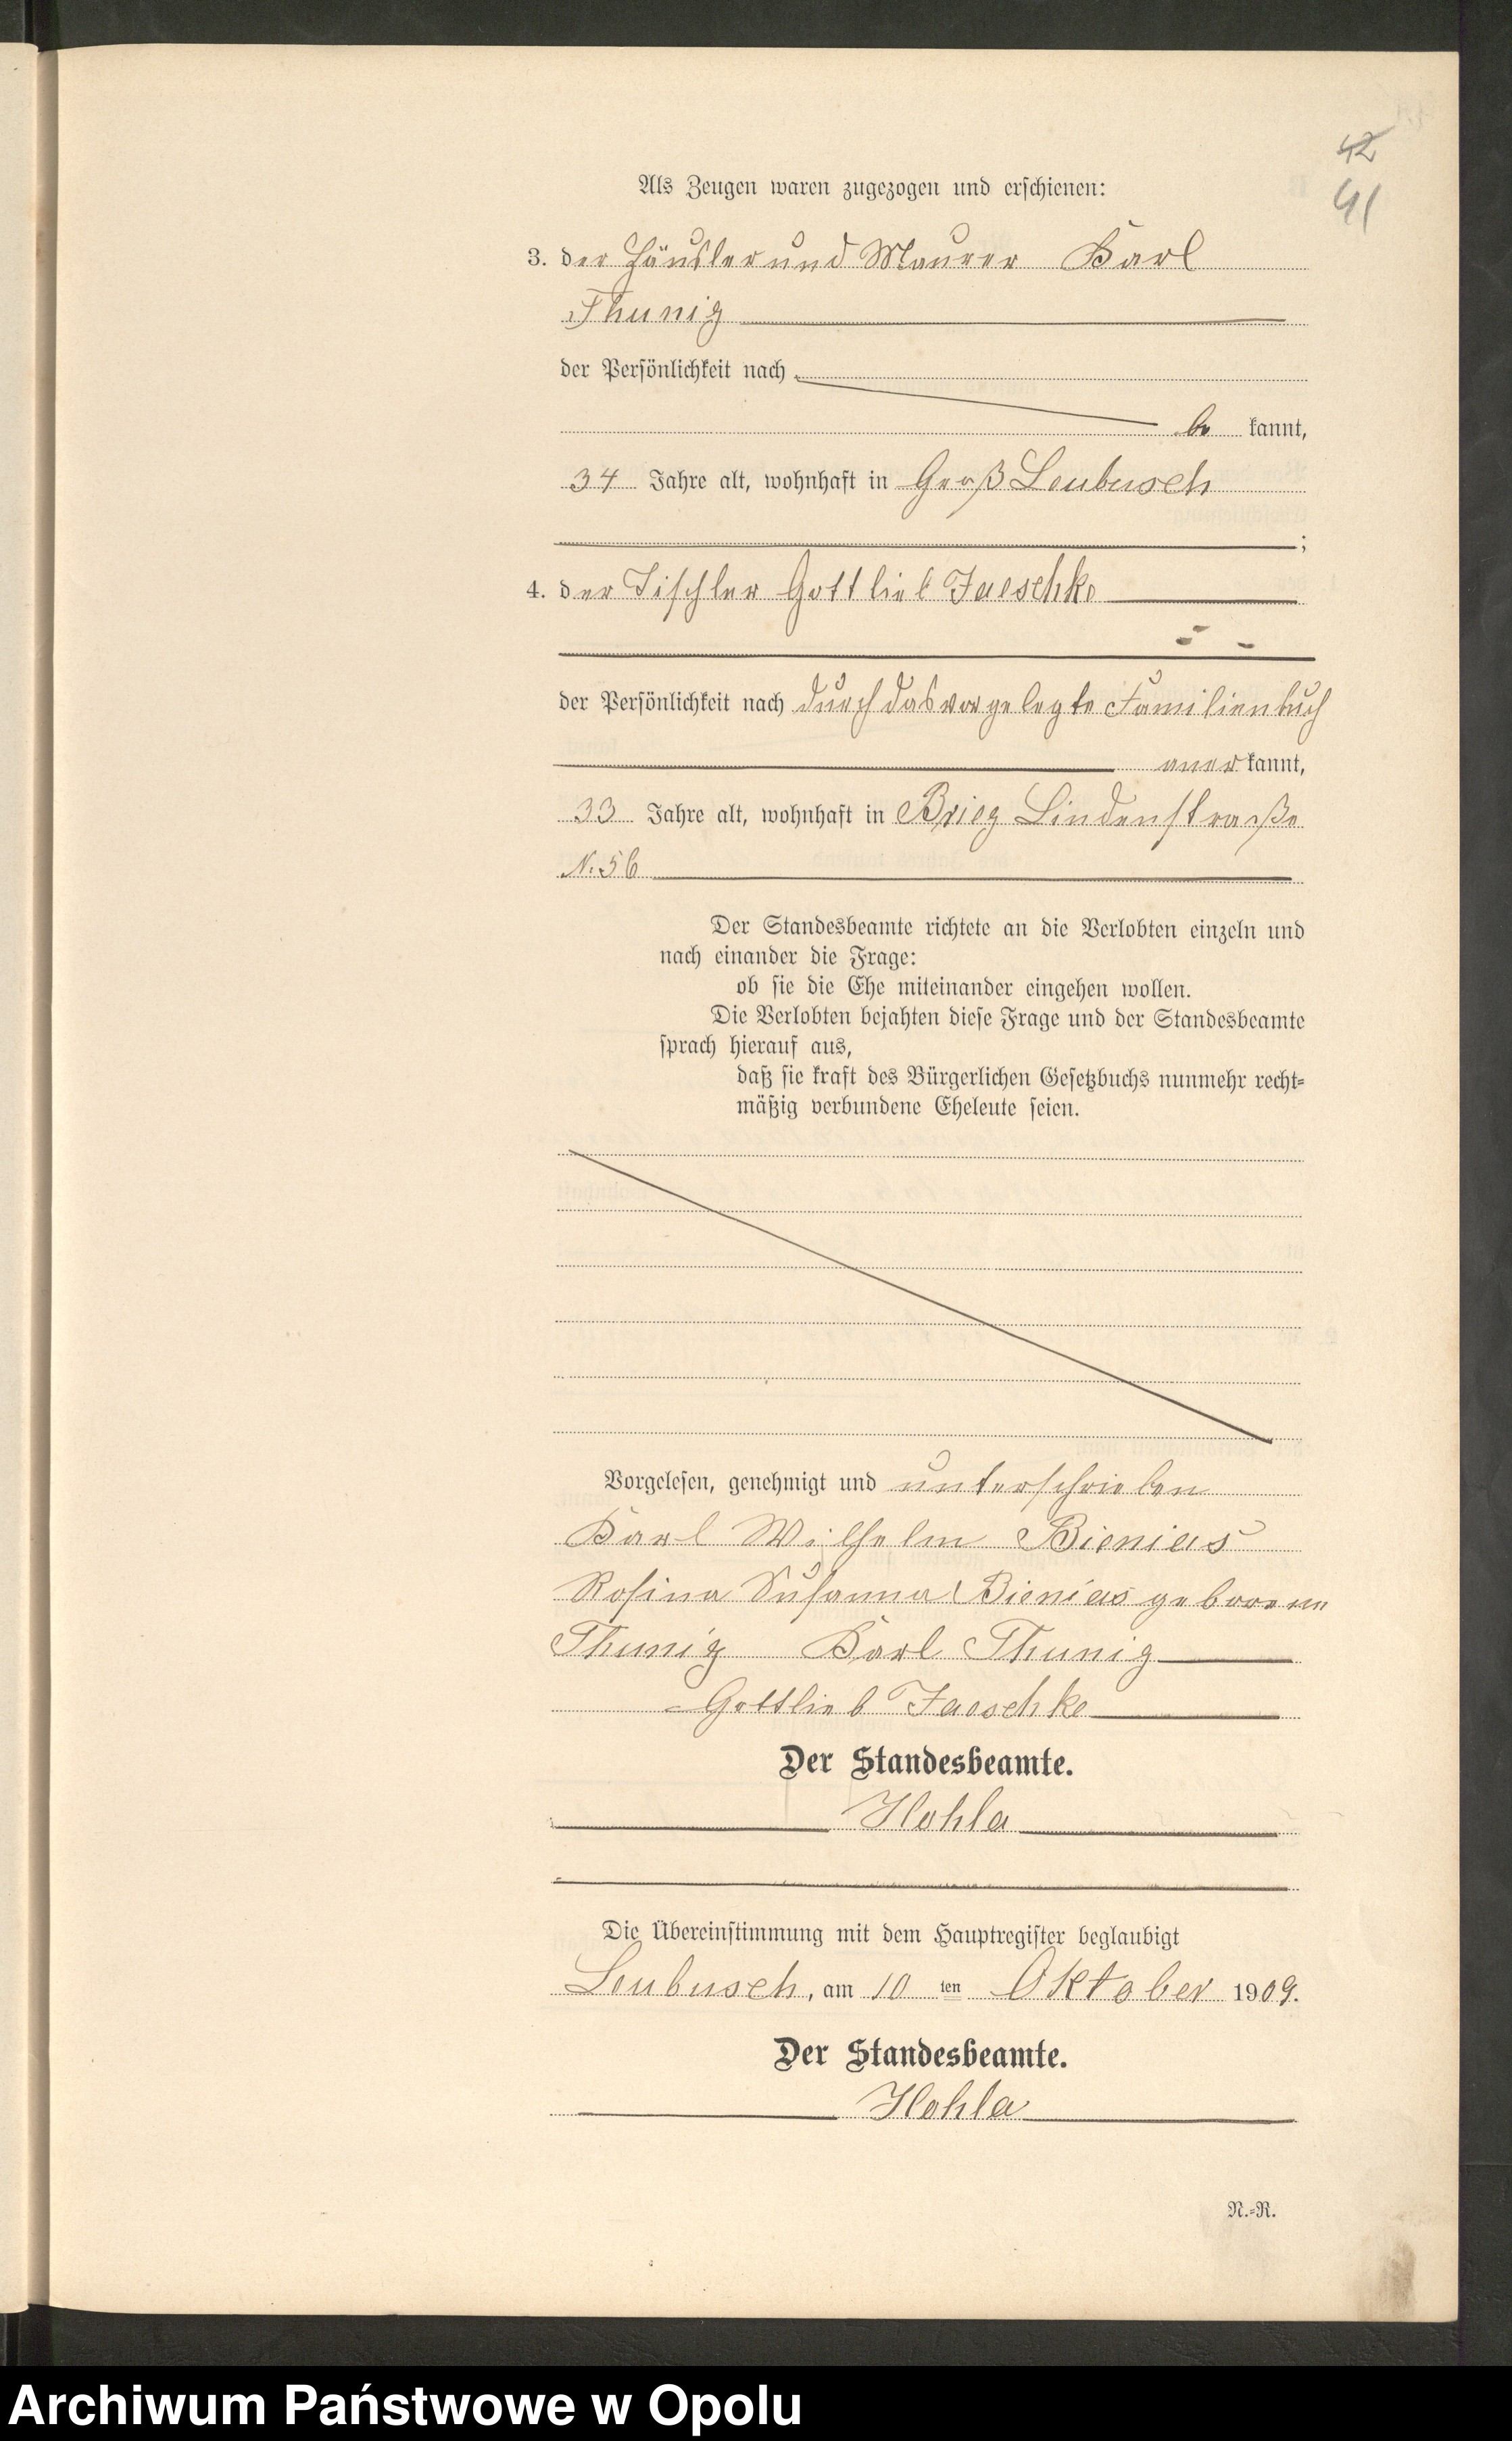 42
41
Als Zeugen waren zugezogen und erschienen:
3. der Häusler und Maurer Karl
Thunig
der Persönlichkeit nach
be kannt,
34 Jahre alt, wohnhaft in Groß Leubusch
;
4. der Tischler Gottlieb Jaeschke
der Persönlichkeit nach durch das vorgelegte Familienbuch
aner kannt,
33 Jahre alt, wohnhaft in Brieg Lindenstraße
N. 56
Der Standesbeamte richtete an die Verlobten einzeln und
nach einander die Frage:
ob sie die Ehe miteinander eingehen wollen.
Die Verlobten bejahten diese Frage und der Standesbeamte
sprach hierauf aus,
daß sie kraft des Bürgerlichen Gesetzbuchs nunmehr recht-
mäßig verbundene Eheleute seien.
Vorgelesen, genehmigt und unterschrieben
Karl Wilhelm Bienias
Rosina Susanna Bienias geborene
Thunig Karl Thunig
Gottlieb Jaeschke
Der Standesbeamte.
Hohla
Die Übereinstimmung mit dem Hauptregister beglaubigt
Leubusch, am 10 ten Oktober 1909.
Der Standesbeamte.
Hohla
N.-R.
Archiwum Państwowe w Opolu